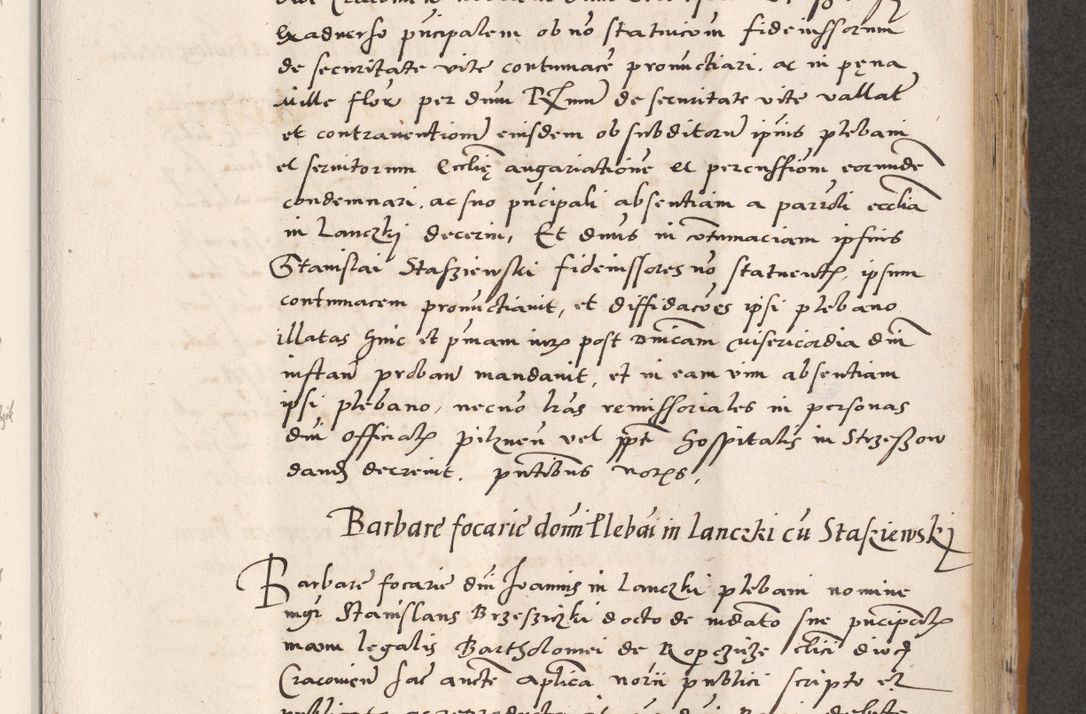 ex adverso pñcipalem ob no statucõm fideiussorum
de securitate vite contumacẽ pronuctiari, ac in pęna
mille floř per dnm R̃mum de securitate vite vallať
et contraventionẽ eiusdem ob subditorũ ipius plebani
et servitorum Ecclię angariationẽ et percussionẽ eorundẽ
condemnari, ac suo pñcipali absentiam a parroli ecclia
in Lanczkj decerni, Et dnus in cõtumaciam ipsius
Stanislai Stasziewski fideiussores nõ statuentꝭ, ipsum
contumacem pronuctiavit, et diffidacões ipsi plebano
illatas hinc et pmam iurꝭ post Dnicam misericordia dnĩ
instañ probari mandavit, et in eam vim absentiam
ipsi plebano, necno lras remissoriales in personas
dnĩ officialꝭ pilzneñ vel ppťi hospitalis in Strzeszow
dandꝭ decrevit, pñtibus norꝭs,
Barbare focarie domĩ Plebãi in Lanczki cũ Stasziewskj
Barbare focarie dnĩ Joannis in Lanczki plebani nomine
mgr Stanislaus Brzesziczki docto de mdato sue pñcipalꝭ
manu legalis Bartholomei de Ropczicze clici diocꝭ
Cracovieñ sac auctẽ aplica norii publici scripto et